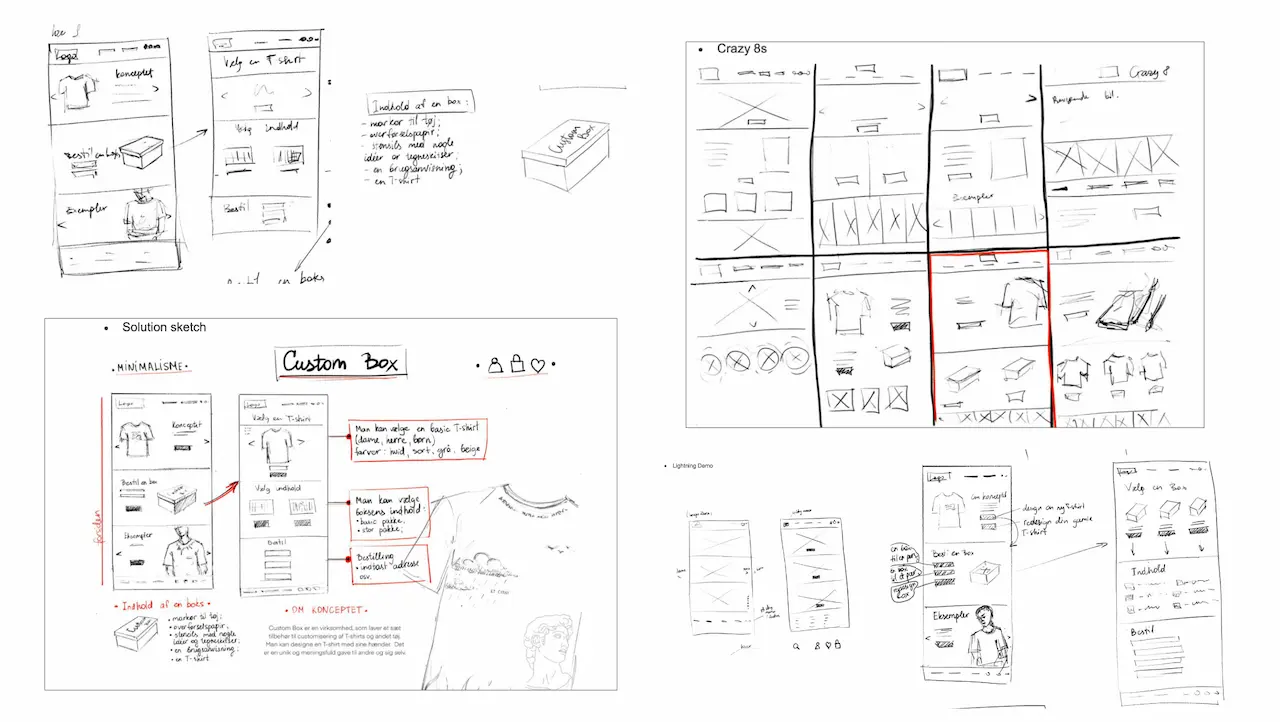 Logo
konceptet
Bestil en box
Eksempler
Vælg en T-shirt
Vælg indhold
Bestil
Indhold af en box:
- markør til tøj;
- overførselspapir;
- stensils med nogle
idéer or tegneskitser;
- en brugsanvisning;
- en T-shirt
Custom
Box
en boks
• Crazy 8s
Crazy 8
Eksempler
• Solution sketch
• MINIMALISME •
Custom Box
Logo
Konceptet
Bestil en box
Eksempler
forsiden
Logo
Vælg en T-shirt
Vælg indhold
Bestil
Man kan vælge en basic T-shirt
(dame, herre, børn)
farver: hvid, sort, grå, beige
Man kan vælge
boksens indhold:
• basic pakke,
• stor pakke;
Bestilling
• indtast adresse
osv.
• Indhold af en boks •
Custom
Box
• markør til tøj;
• overførselspapir;
• stensils med nogle
idéer og tegneskitser;
• en brugsanvisning;
• en T-shirt
• OM KONCEPTET •
Custom Box er en virksomhed, som laver et sæt
tilbehør til customisering af T-shirts og andet tøj.
Man kan designe en T-shirt med sine hænder. Det
er en unik og meningsfuld gave til andre og sig selv.
• Lightning Demo
Logo
Om konceptet
design en ny T-shirt
redesign den gamle
T-shirt
Bestil en Box
Eksempler
Logo
Vælg en Box
Indhold
Bestil